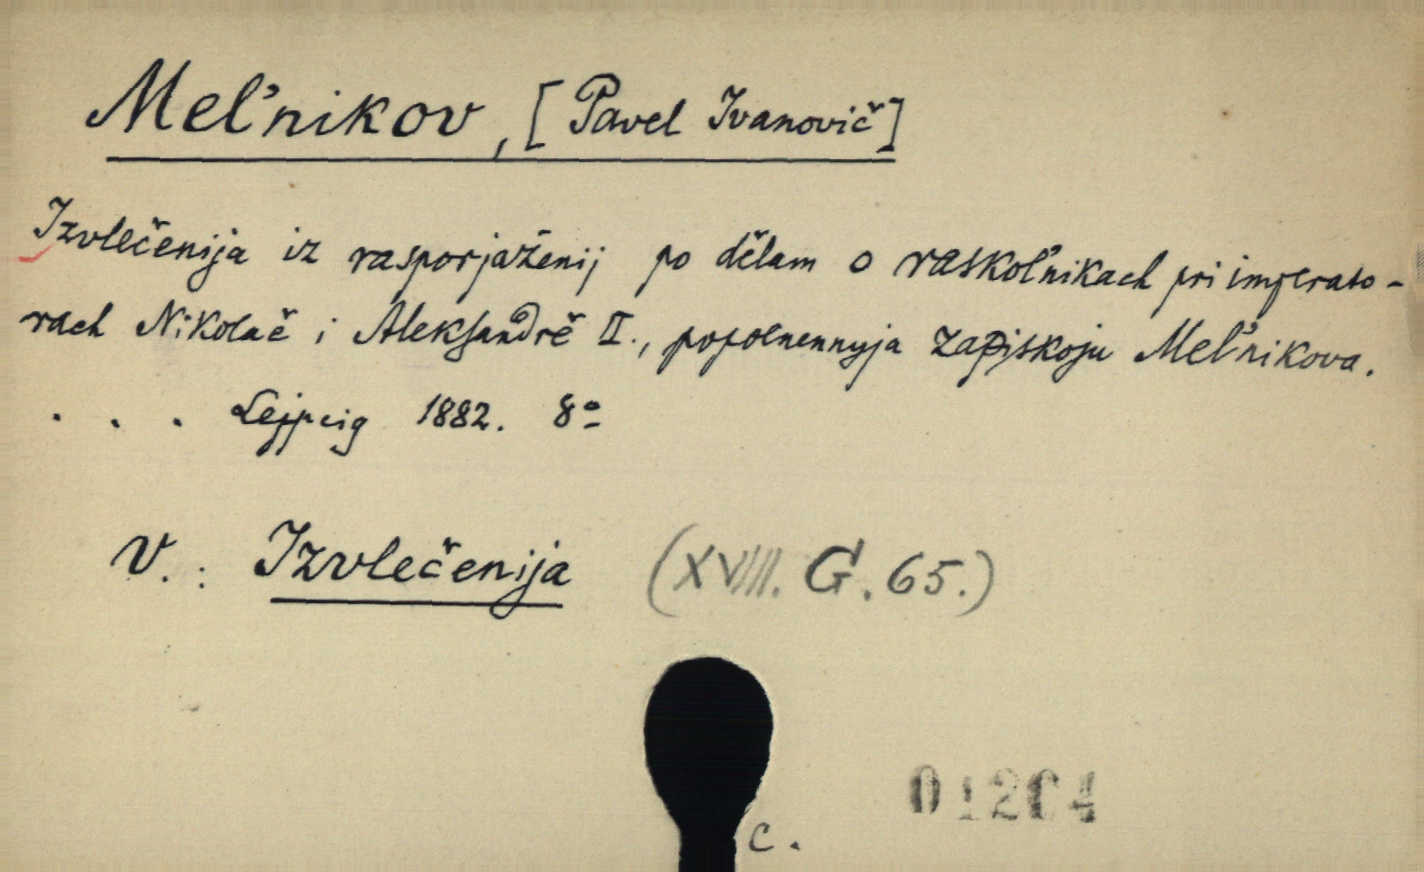 Mel'nikov, [Pavel Ivanovič]
Izvlečenija iz rasporjaženij po dělam o raskol'nikach pri imperato-
rach Nikolaě i Aleksandrě II., popolnennyja zapiskoju Mel'nikova.
. . . Lejpcig 1882. 8º
V.: Izvlečenija (XVIII. G. 65.)
01204
c.